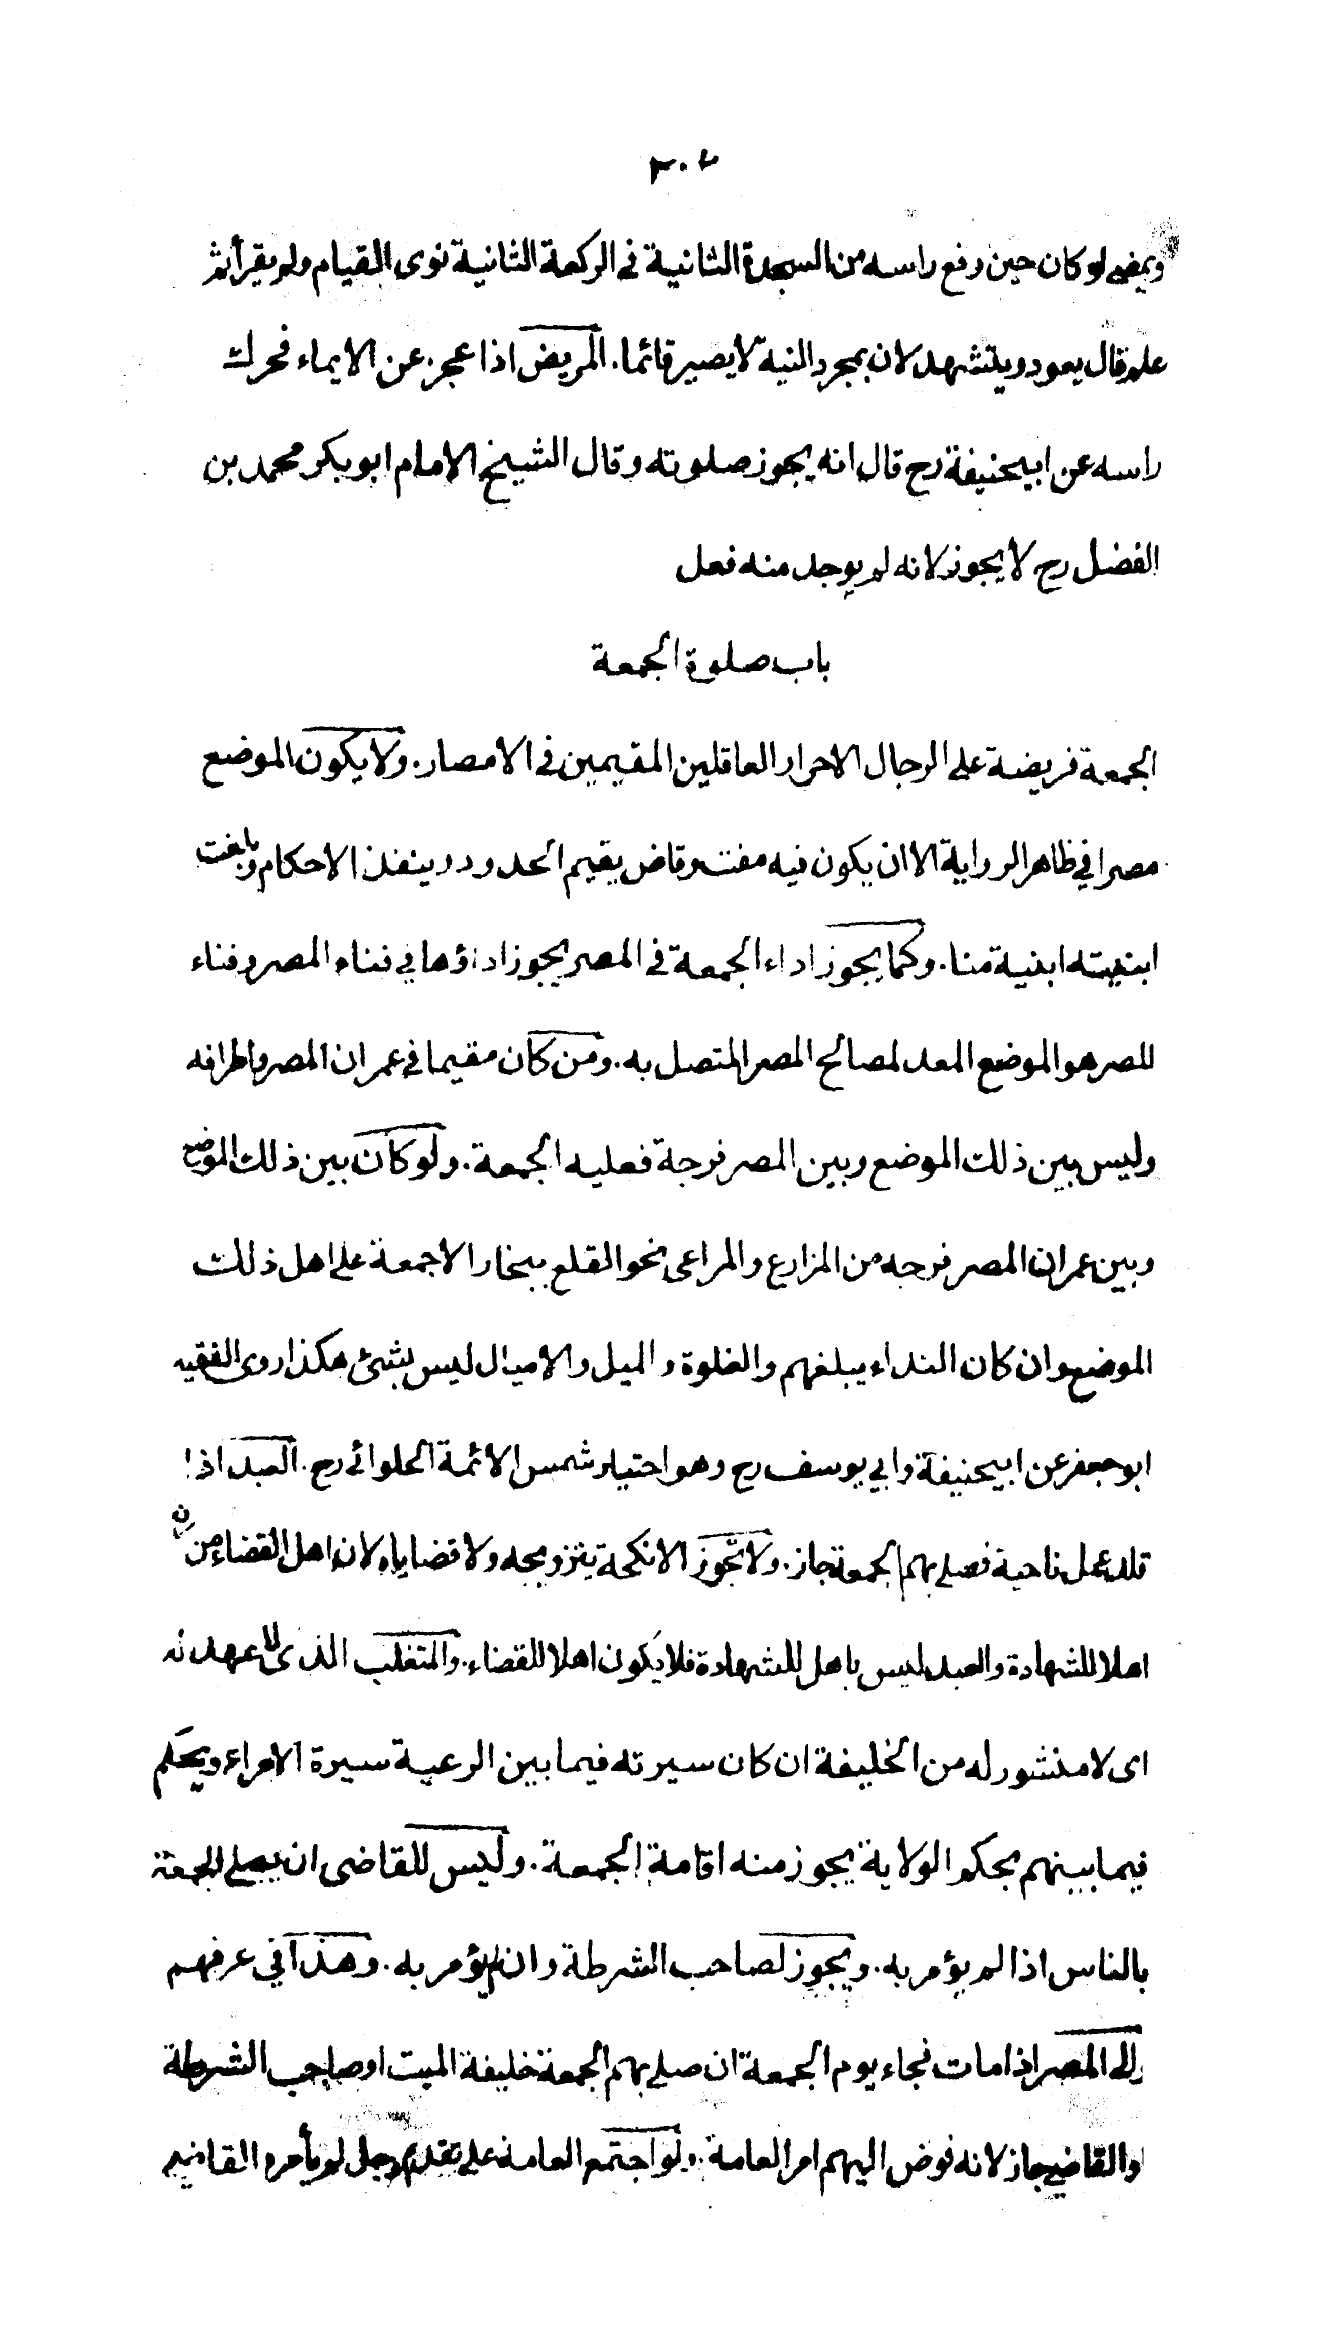 ٣٠٧
ويمضي لو كان حين رفع راسه من السجدة الثانية في الركعة الثانية نوى القيام ولم يقرأ ثم
علم قال يعود ويتشهد لان بمجرد النية لا يصير قائما. المريض اذا عجز عن الايماء فحرك
راسه عن ابيحنيفة رح قال انه يجوز صلوته وقال الشيخ الامام ابو بكر محمد بن
الفضل رح لا يجوز لانه لم يوجد منه فعل
باب صلوة الجمعة
الجمعة فريضة على الرجال الاحرار العاقلين المقيمين في الامصار. ولا يكون الموضع
مصرا في ظاهر الرواية الا ان يكون فيه مفت وقاض يقيم الحدود وينفذ الاحكام وبلغت
ابنيته ابنية منا. وكما يجوز اداء الجمعة في المصر يجوز اداؤها في فناء المصر وفناء
المصر هو الموضع المعد لمصالح المصر المتصل به. ومن كان مقيما في عمران المصر واطرافه
وليس بين ذلك الموضع وبين المصر فرجة فعليه الجمعة. ولو كان بين ذلك الموضع
وبين عمران المصر فرجه من المزارع والمراعى نحو القلع ببخارا لا جمعة على اهل ذلك
الموضع وان كان النداء يبلغهم والغلوة والميل والاميال ليس بشئ هكذا روى الفقيه
ابو جعفر عن ابيحنيفة وابي يوسف رح وهو اختيار شمس الائمة الحلوائي رح. العبد اذا
قلد عمل ناحية فصلى بهم الجمعة جاز. ولا تجوز الانكحة بتزويجه ولا قضاياه لان اهل القضاء من كان
اهلا للشهادة والعبد ليس باهل للشهادة فلا يكون اهلا للقضاء. والمتغلب الذى لا عهد له
اى لا منشور له من الخليفة ان كان سيرته فيما بين الرعية سيرة الامراء ويحكم
فيما بينهم بحكم الولاية يجوز منه اقامة الجمعة. وليس للقاضى ان يصلي الجمعة
بالناس اذا لم يؤمر به. ويجوز لصاحب الشرطة وان لم يؤمر به. وهذا في عرفهم
والى المصر اذا مات فجاء يوم الجمعة ان صلى بهم الجمعة خليفة الميت او صاحب الشرطة
او القاضي جاز لانه فوض اليهم امر العامة. ولو اجتمع العامة على تقديم رجل لم يأمره القاضي